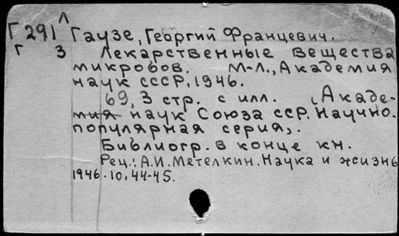 Г291 Л Гаузе, Георгий Францевич.
Г 3 Лекарственные вещества
микробов. М-Л., Академия
наук СССР, 1946.
69, 3 стр. с илл. (Акаде-
мия наук Союза ССР. Научно.
популярная серия).
Библиогр. в конце кн.
Рец.: А.И. Метелкин. Наука и жизнь
1946. 10, 44-45.